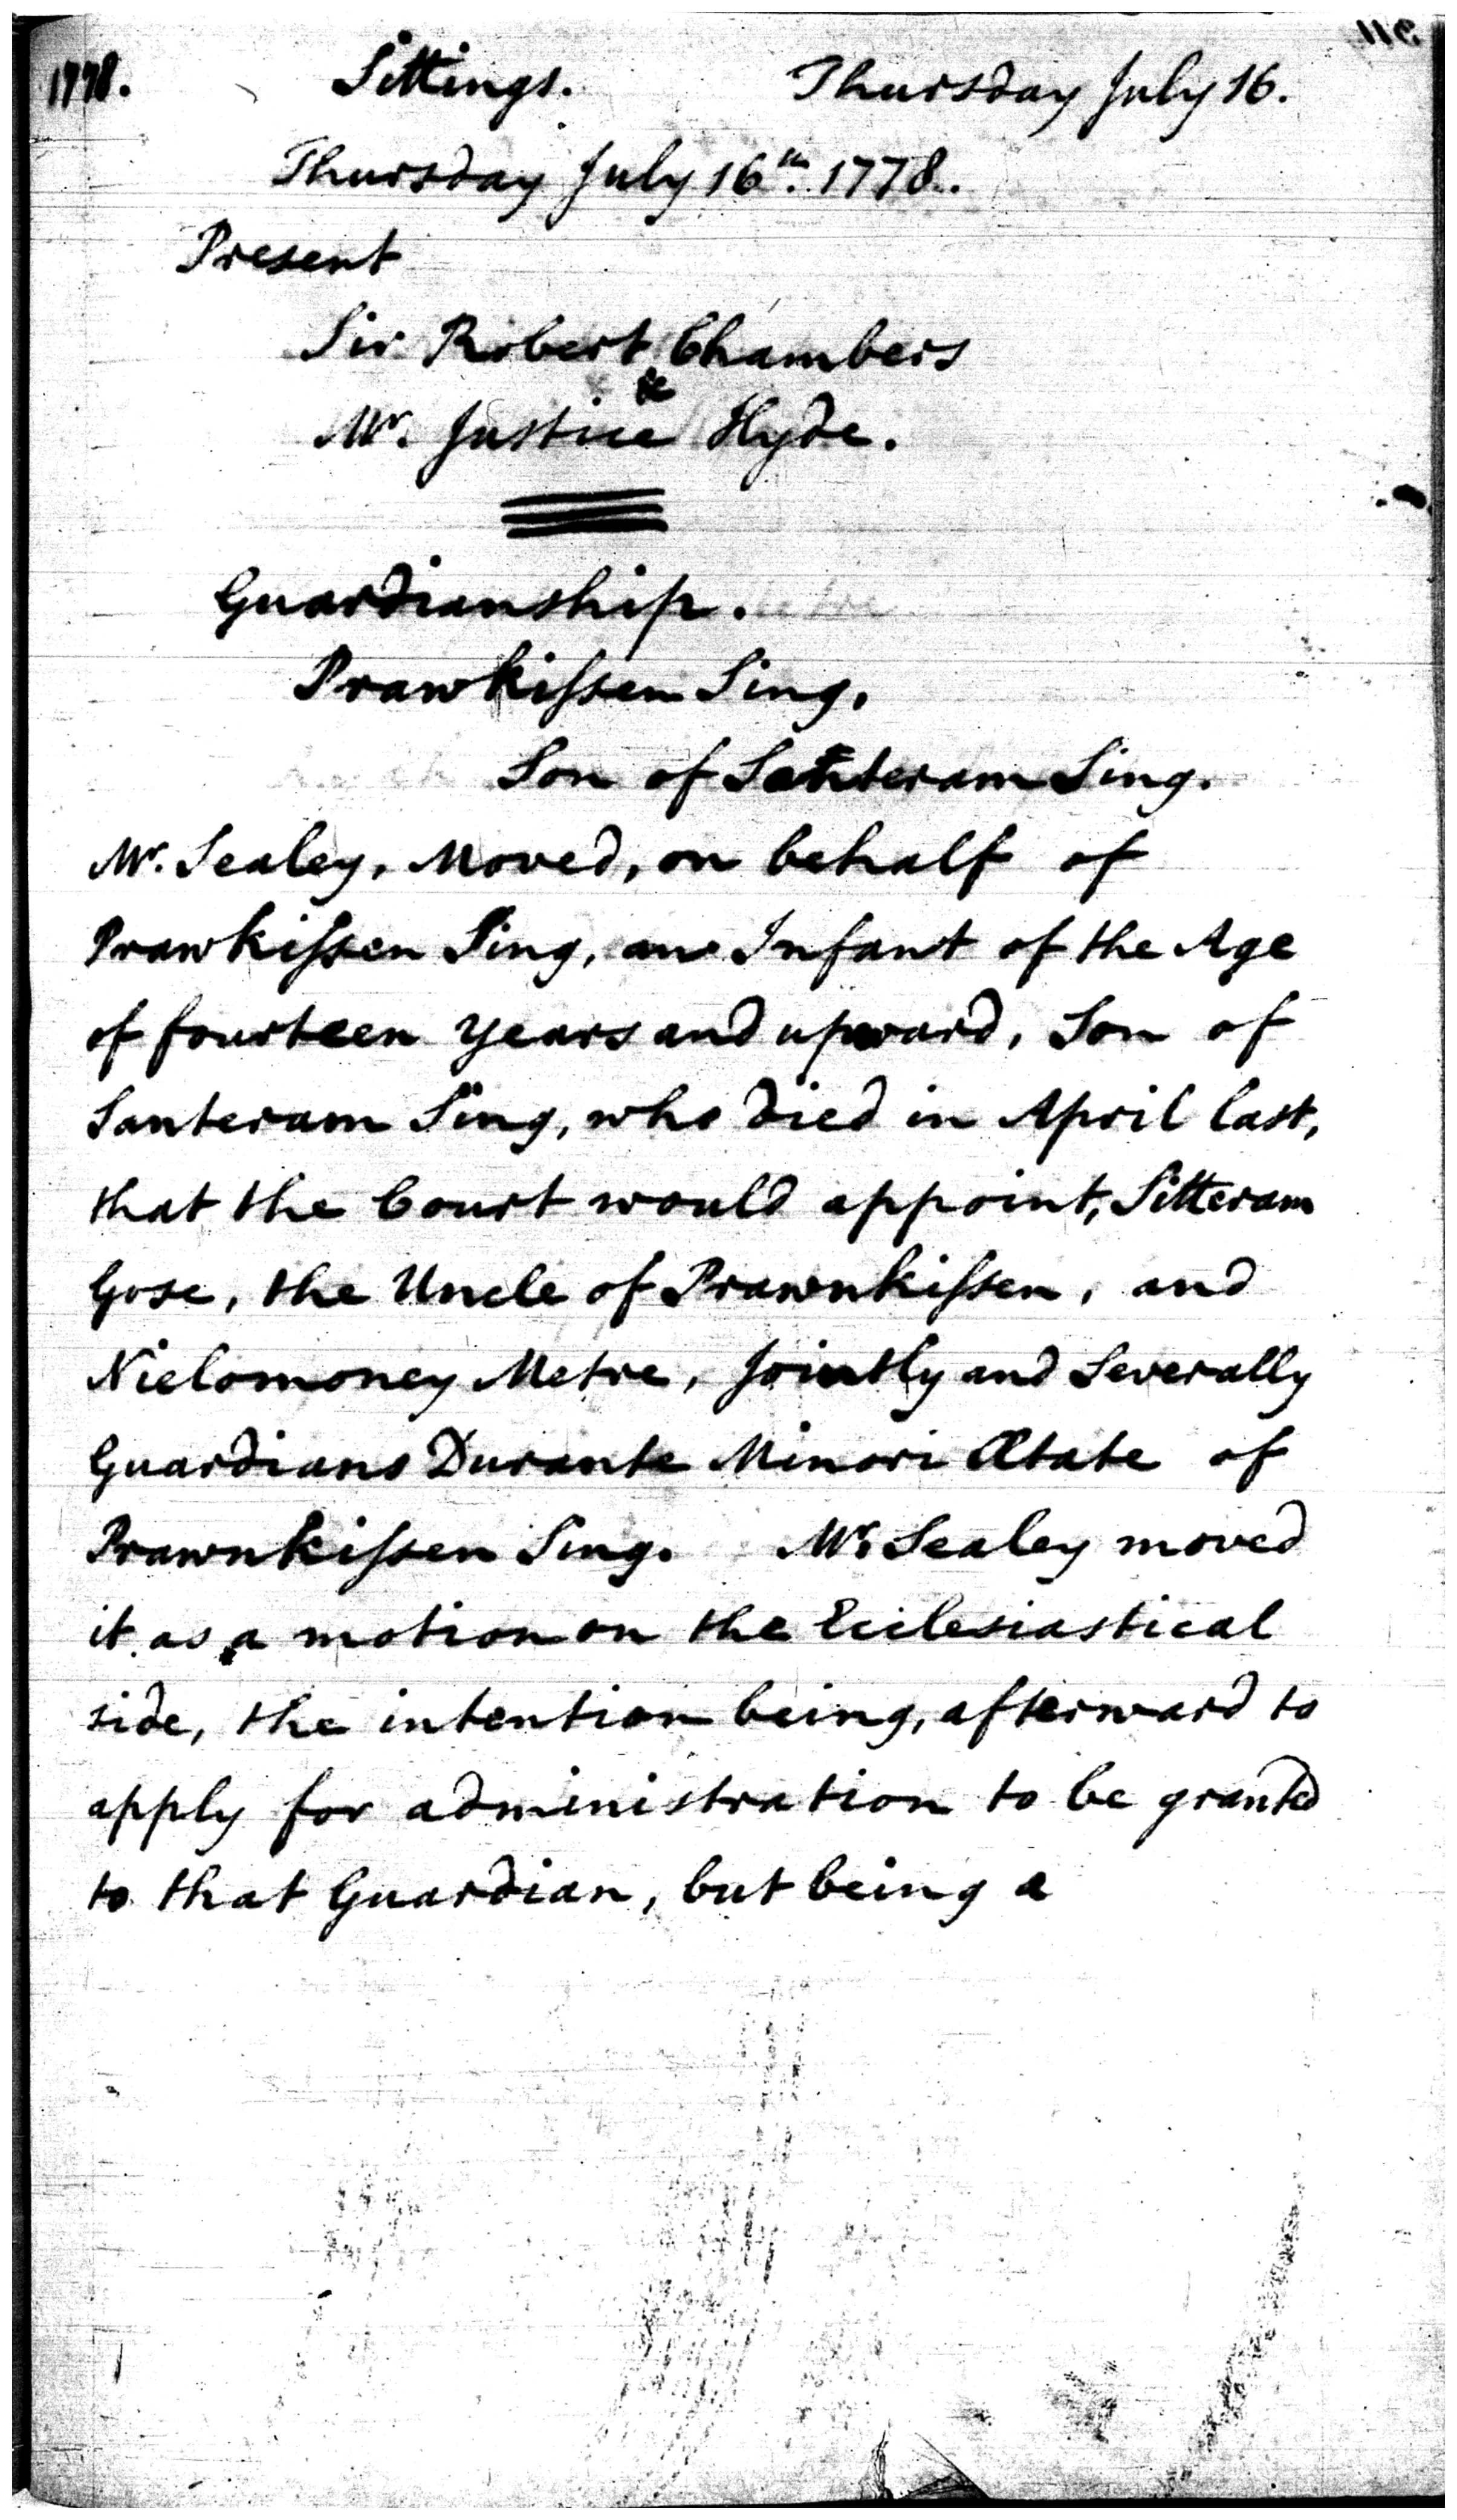 1778. Sittings. Thursday July 16.
Thursday July 16th. 1778.
Present
Sir Robert Chambers
&
Mr. Justice Hyde.
Guardianship.
Prawkissen Sing,
Son of Santeram Sing.
Mr. Sealey, Moved, on behalf of
Prawkissen Sing, an Infant of the Age
of fourteen years and upward, Son of
Santeram Sing, who died in April last,
that the Court would appoint, Sitteram
Gose, the Uncle of Prawnkissen, and
Nielomoney Metre, jointly and Severally
Guardians Durante Minori Ætate of
Prawnkissen Sing. Mr. Sealey moved
it as a motion on the Ecclesiastical
side, the intention being, afterward to
apply for administration to be granted
to that Guardian, but being a